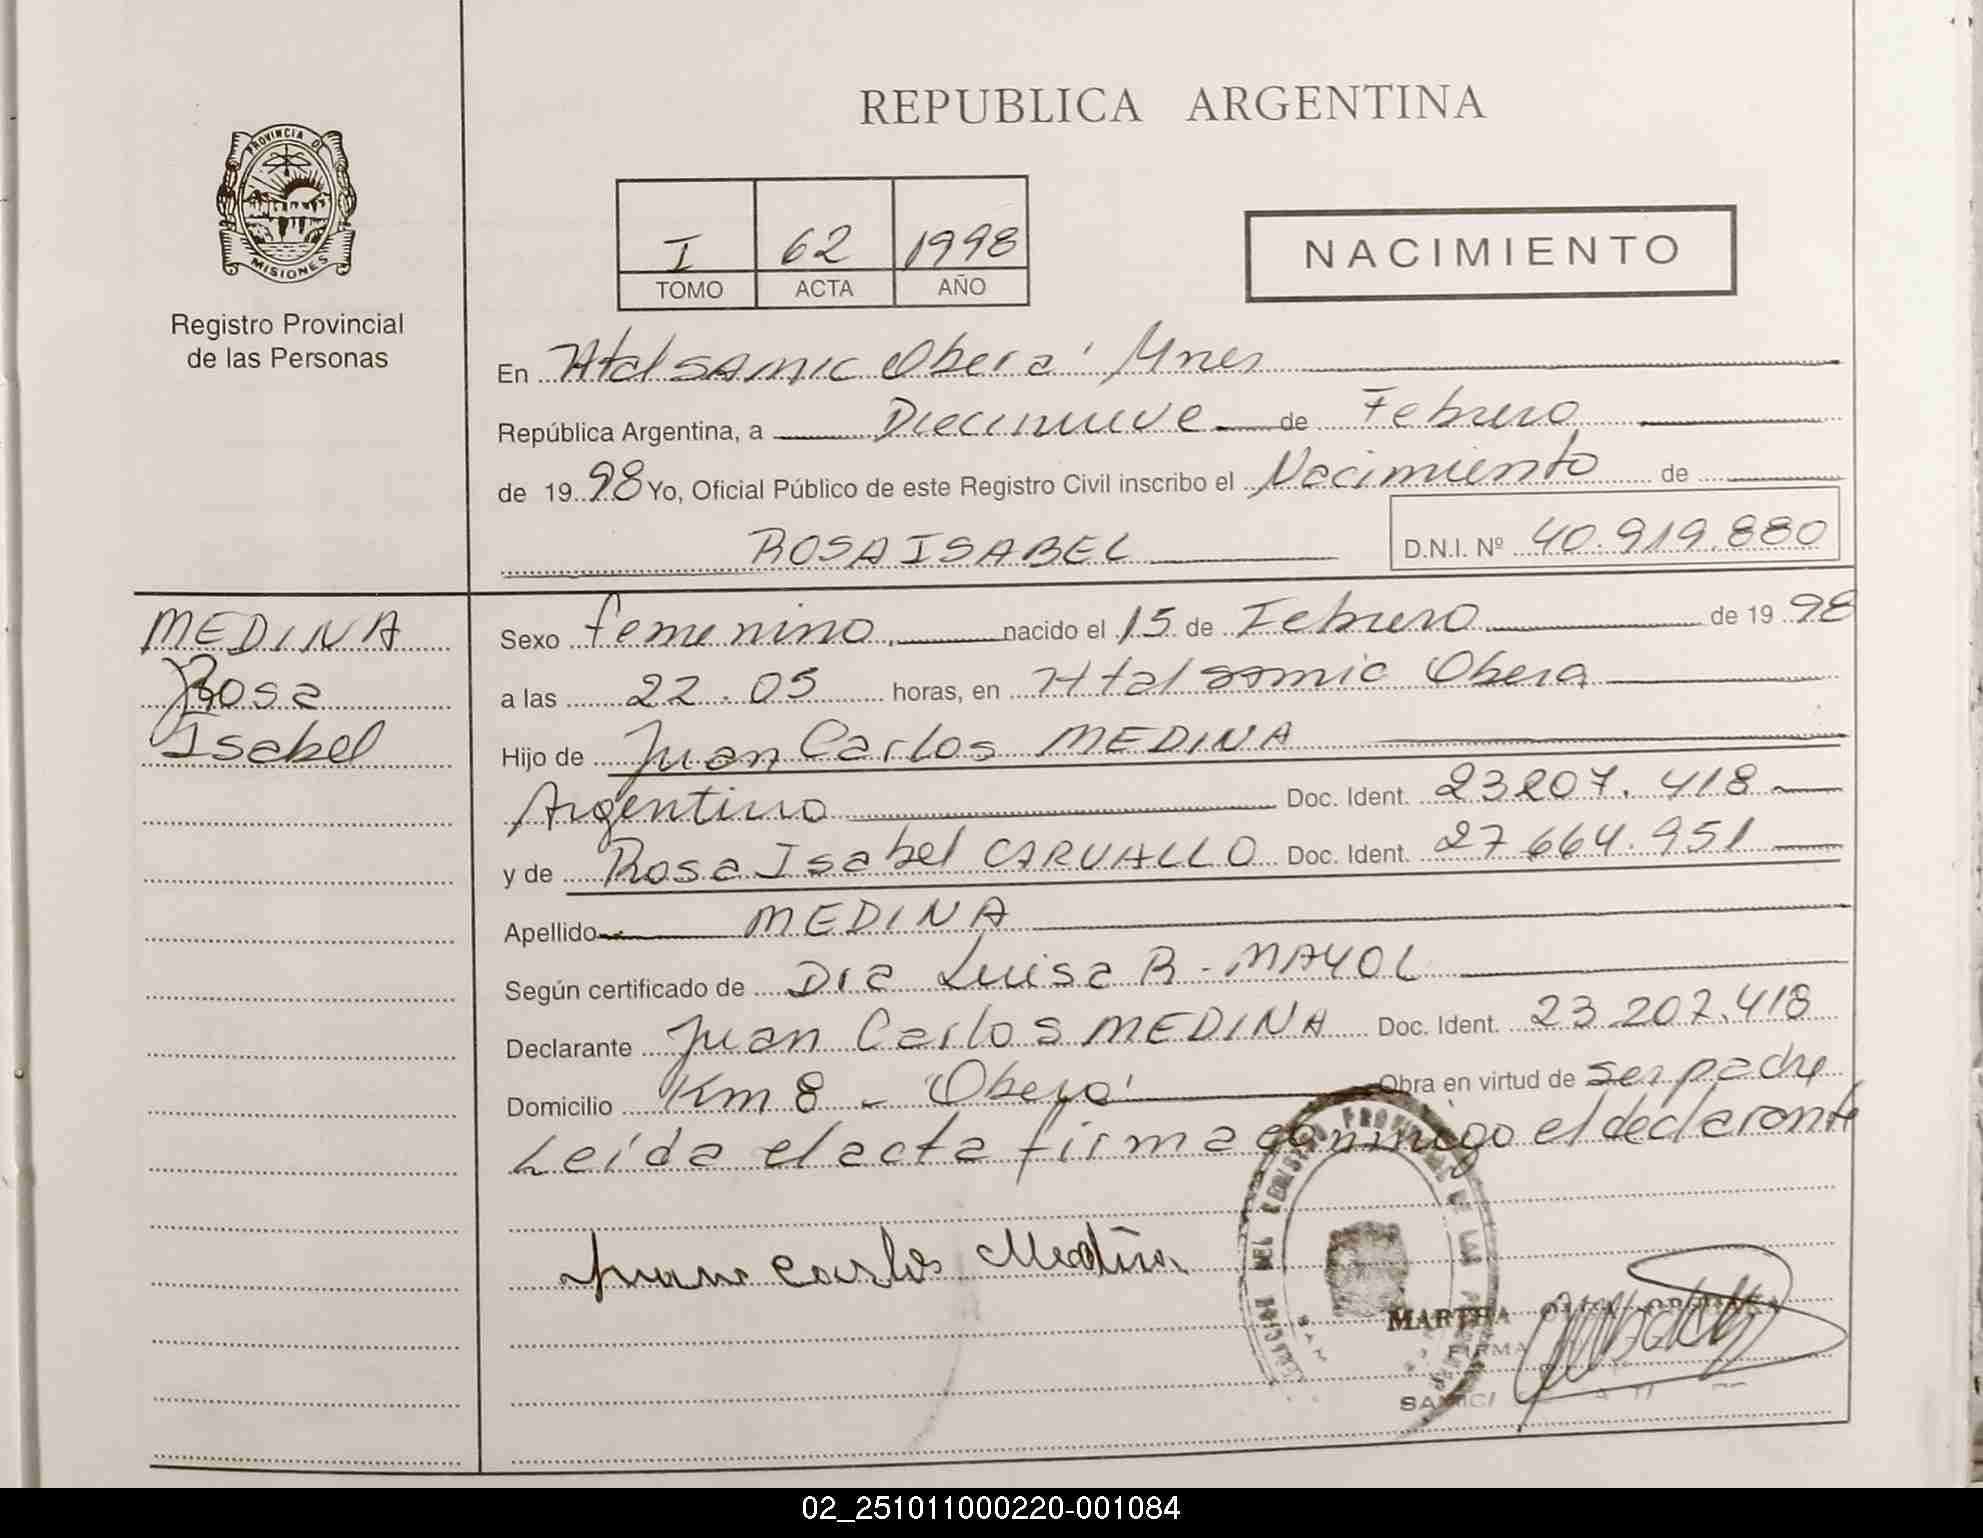 PROVINCIA DE
MISIONES
Registro Provincial
de las Personas
REPUBLICA ARGENTINA
I 62 1998
TOMO ACTA AÑO
NACIMIENTO
En Htal SAMIC Oberá Mnes
República Argentina, a Diecinueve de Febrero
de 19 98 Yo, Oficial Público de este Registro Civil inscribo el Nacimiento de
ROSA ISABEL D.N.I. Nº 40.919.880
MEDINA
Rosa
Isabel
Sexo femenino nacido el 15 de Febrero de 19 98
a las 22.05 horas, en Htal Samic Obera
Hijo de Juan Carlos MEDINA
Argentino Doc. Ident. 23207.418
y de Rosa Isabel CARVALLO Doc. Ident. 27664.951
Apellido MEDINA
Según certificado de Dra Luisa R. MAYOL
Declarante Juan Carlos MEDINA Doc. Ident. 23.207.418
Domicilio Km 8 - Oberá Obra en virtud de ser padre
Leída el acta firma conmigo el declarante
Juan Carlos Medina
MARTHA
FIRMA
02_251011000220-001084